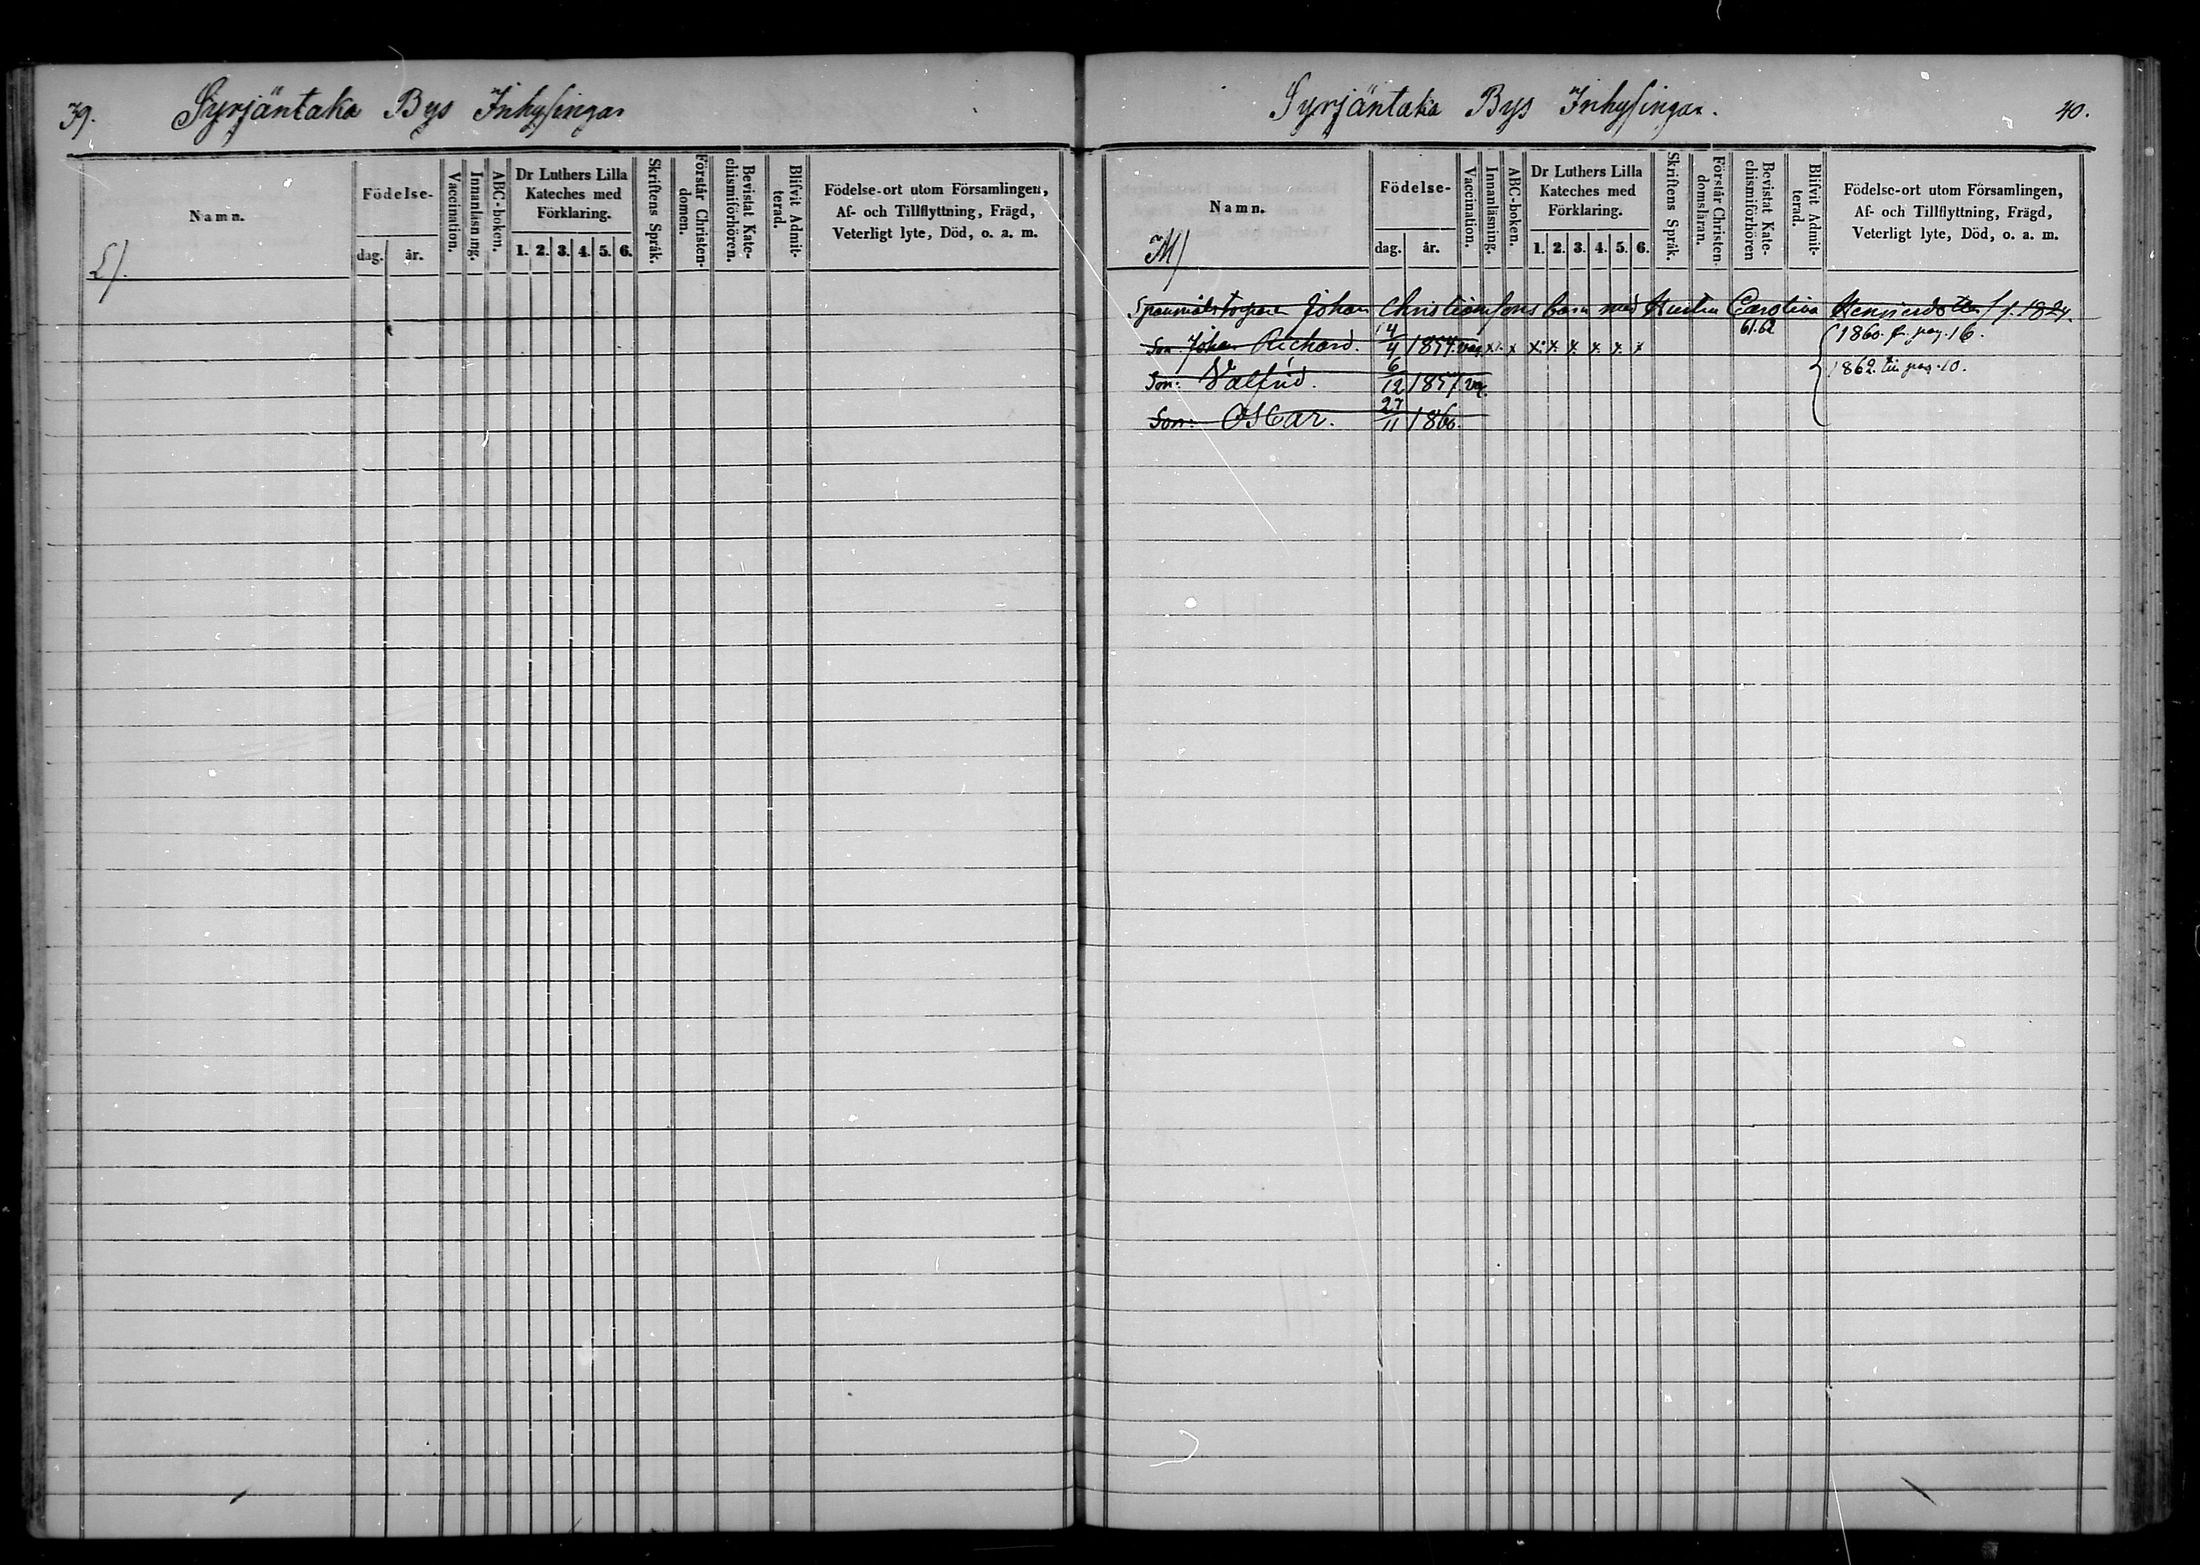 39. Syrjäntaka Bys Inhysingar
Namn.
L).
Födelse-
dag. år.
Vaccination.
Innanläsning.
ABC-boken.
Dr Luthers Lilla
Kateches med
Förklaring.
1. 2. 3. 4. 5. 6.
Skriftens Språk.
Förstår Christen-
domen.
Bevistat Kate-
chismiförhören.
Blifvit Admit-
terad.
Födelse-ort utom Församlingen,
Af- och Tillflyttning, Frägd,
Veterligt lyte, Död, o. a. m.
Syrjäntaka Bys Inhysingar. 40.
Namn.
M)
Födelse-
dag. år.
Vaccination.
Innanläsning.
ABC-boken.
Dr Luthers Lilla
Kateches med
Förklaring.
1. 2. 3. 4. 5. 6.
Skriftens Språk.
Förstår Christen-
domslaran.
Bevistat Kate-
chismiförhören
Blifvit Admit-
terad.
Födelse-ort utom Församlingen,
Af- och Tillflyttning, Frägd,
Veterligt lyte, Död, o. a. m.
Johan Christiansons barn med Hustru Carolina f. 1824.
Son Johan Richard. 14/4 1854. vac. x. x x. x. x. x. x. x 61.62 1860. fr. pag. 16.
Son: Valfrid. 6/12 1857. vac. 1862. till pag. 10.
Son: Oscar. 27/11 1860.